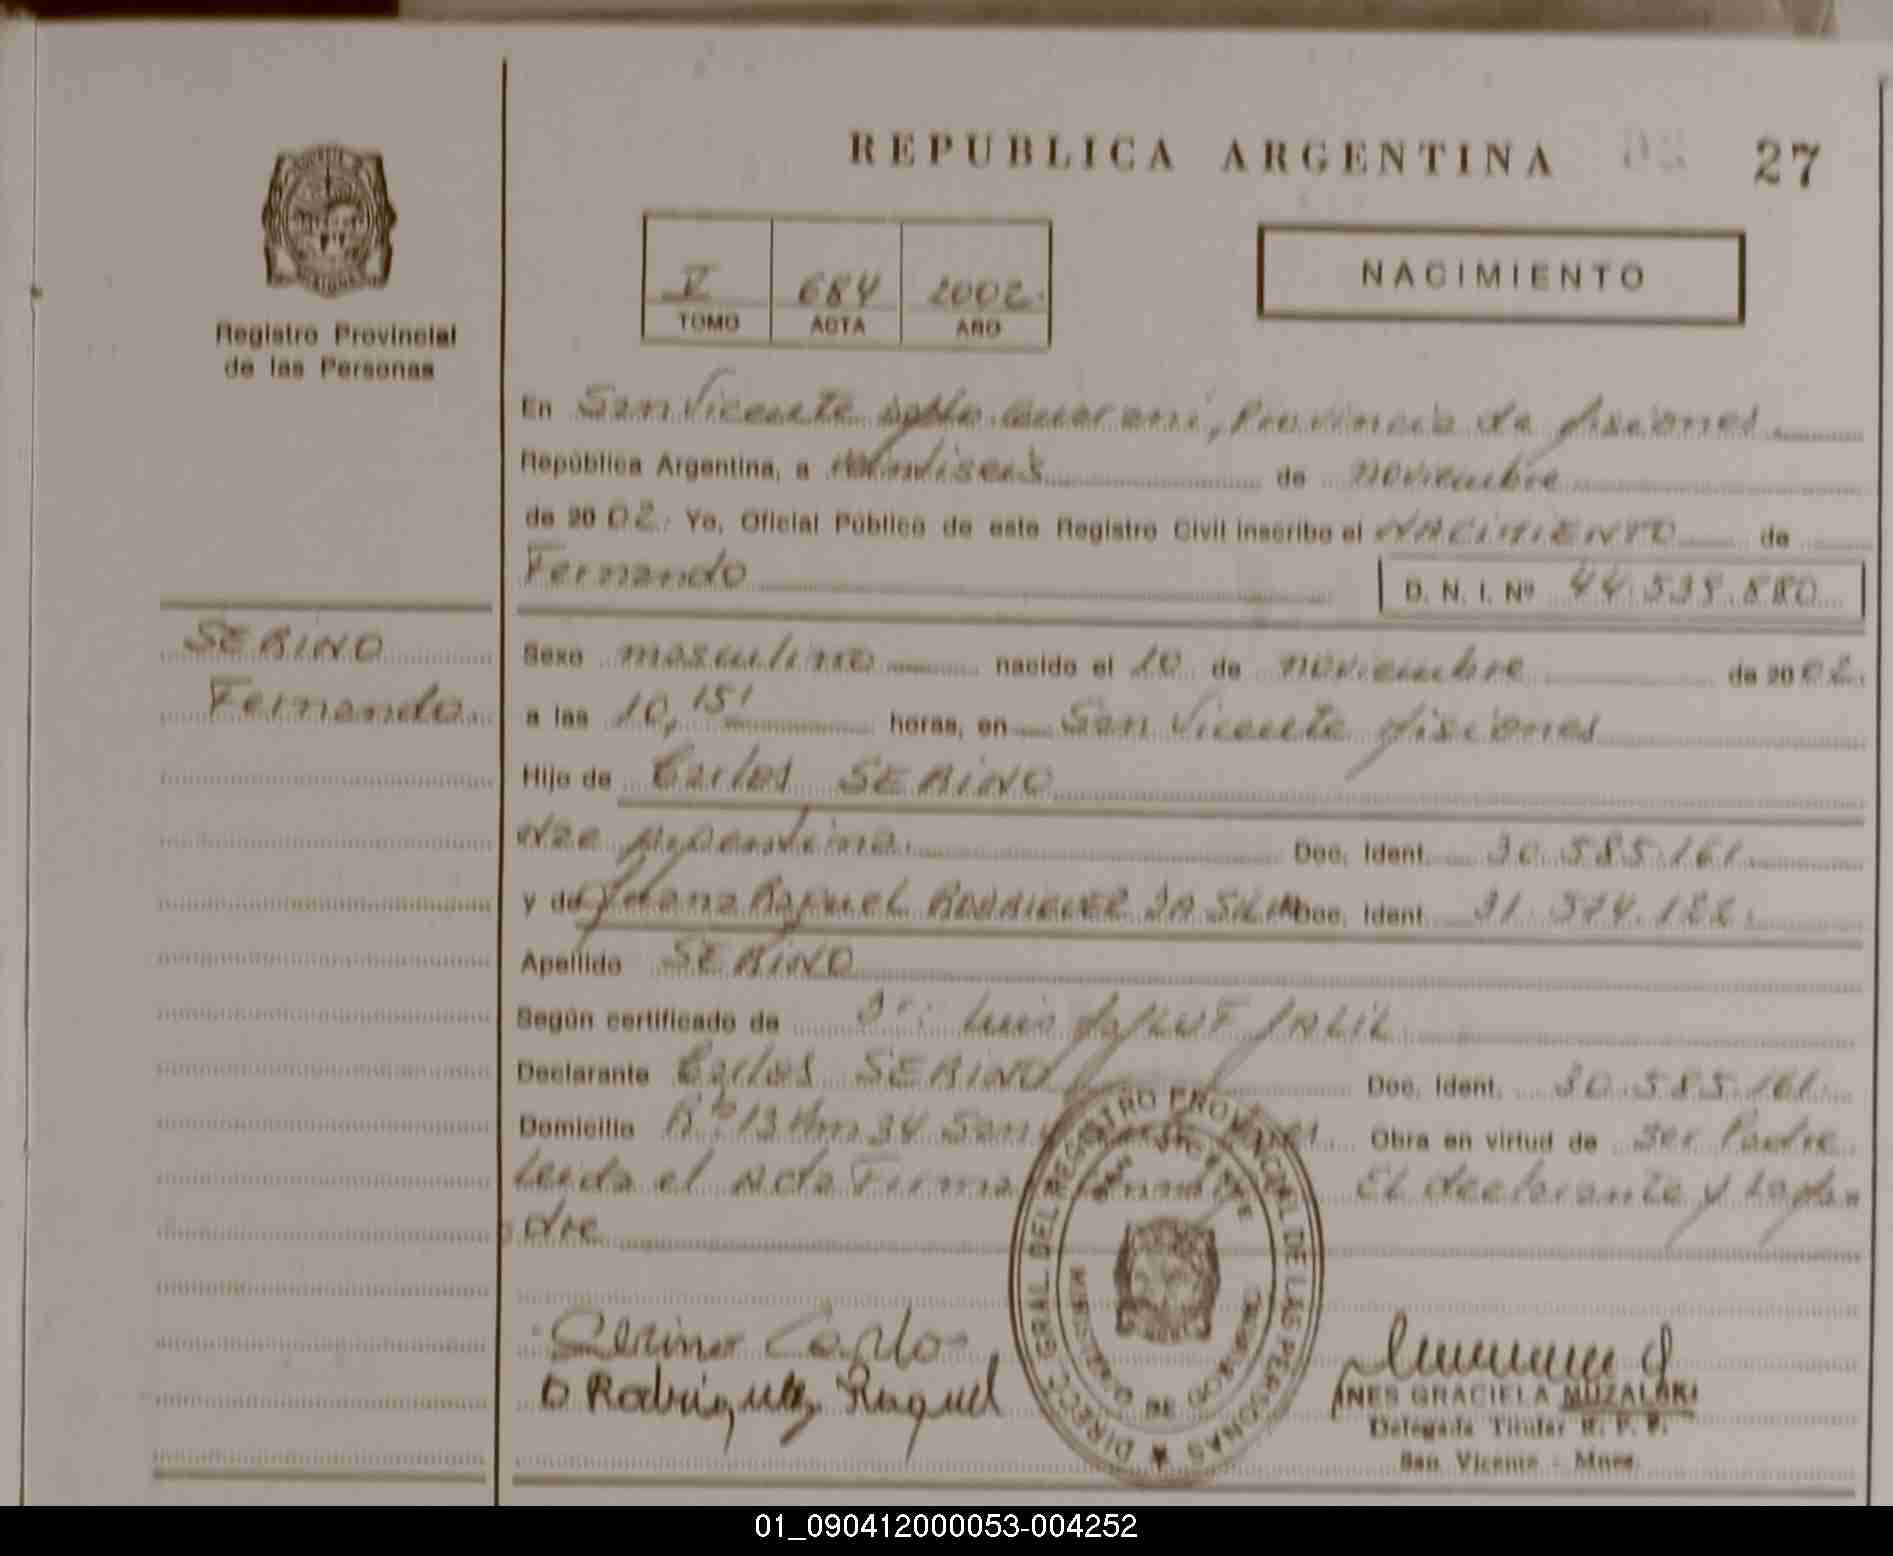 REPUBLICA ARGENTINA
27
Registro Provincial
de las Personas
V 684 2002
TOMO ACTA AÑO
NACIMIENTO
En San Vicente Dpto Guarani, Provincia de Misiones
República Argentina, a veintiseis de noviembre
de 2002. Yo, Oficial Público de este Registro Civil inscribo el NACIMIENTO de
Fernando
D. N. I. Nº 44.538.880
SERINO
Fernando
Sexo masculino nacido el 10 de noviembre de 2002
a las 10,15 horas, en San Vicente Misiones
Hijo de Carlos SERINO
Nac Argentina Doc. Ident. 30.585.161
y de Raquel RODRIGUEZ DA SILVA Doc. Ident. 31.574.122.
Apellido SERINO
Según certificado de Dr: Luis
Declarante Carlos SERINO Doc. Ident. 30.585.161
Domicilio Rta 13 Km 34 San Obra en virtud de ser Padre
Leida el Acta Firma El declarante y la ma
dre
Serino Carlos
D Rodriguez Raquel
DIRECC. GRAL. DEL REGISTRO PROVINCIAL DE LAS PERSONAS
SAN VICENTE
INES GRACIELA MUZALSKI
Delegada Titular R. P. P.
San Vicente - Mnes.
01_090412000053-004252